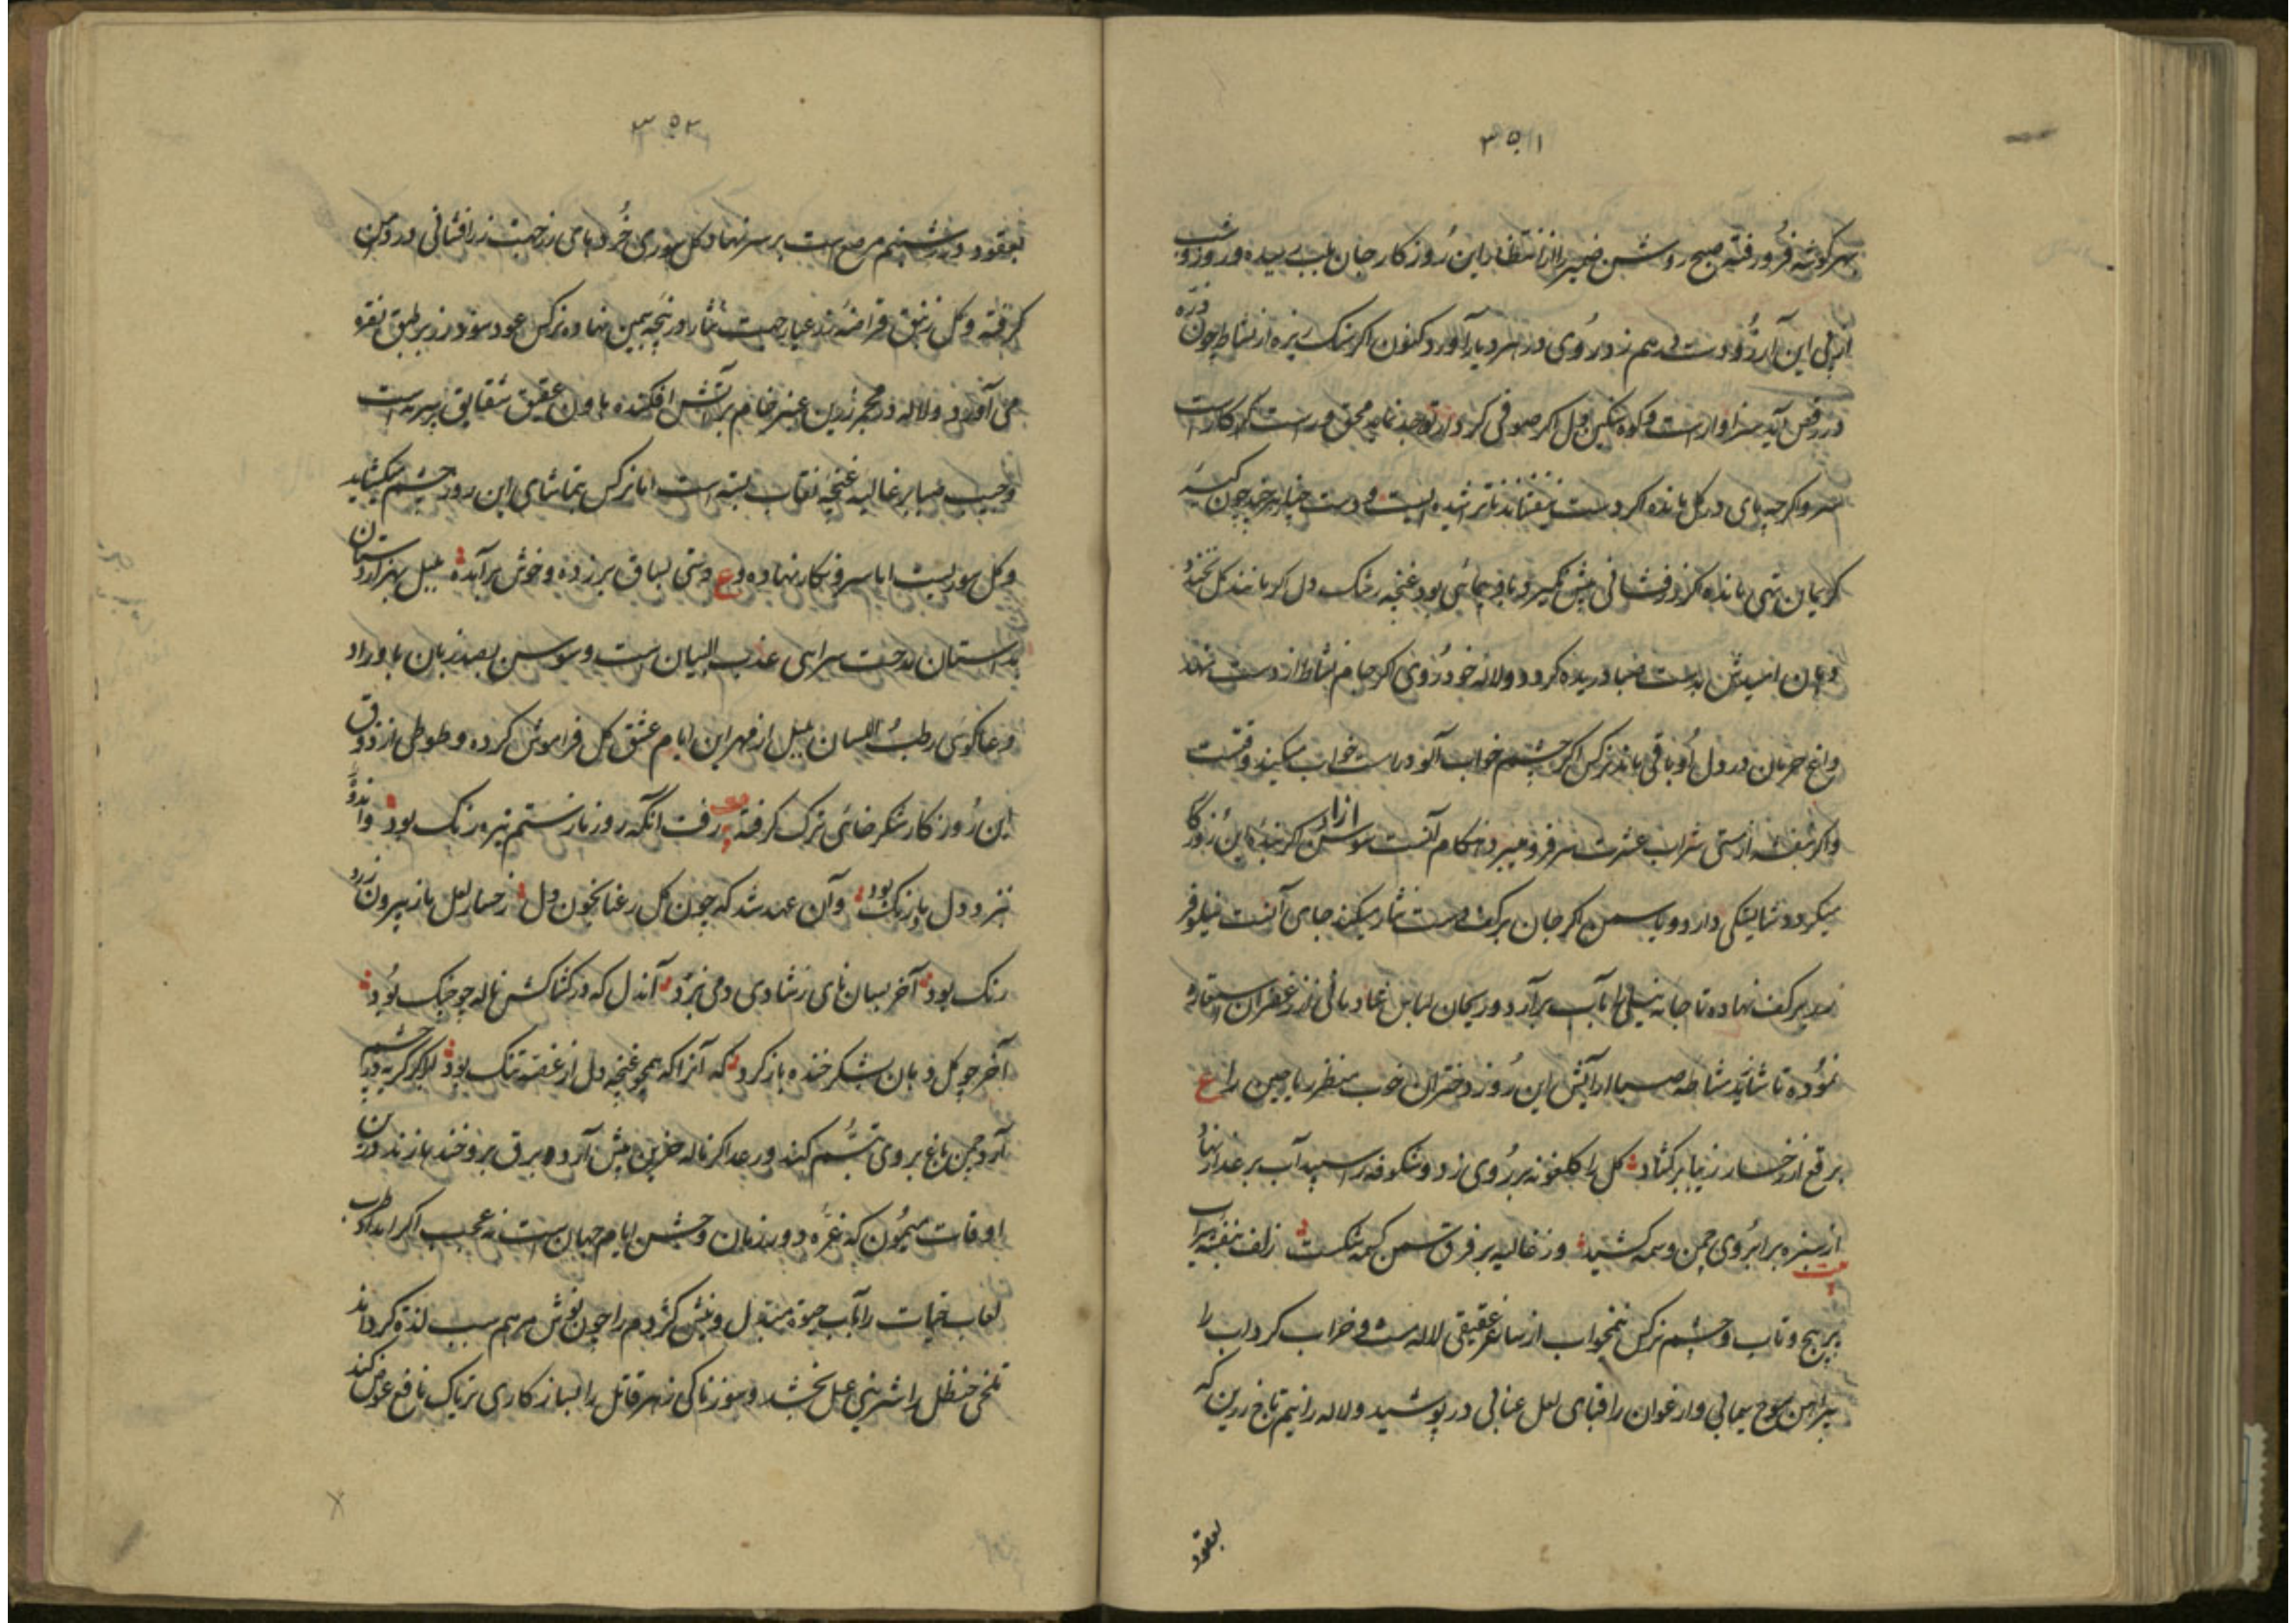 ۳۵۱
بهر گوشه فرو رفته صبح روشن ضمیر را از انتظار این روزگار جان بلب رسیده و روز و شب
از پی این آرزو دست در هم زد و روی در سرد بار آورد کنون اگر سنگ ریزه از نشاط چون ذره
در رقص آید سزاوارست و کوه سنگین دل اگر صوفی کردار تواجد نماید محق و راست کردارست
سرو اگرچه پای در گل مانده اگر دست نیفشاند ناتراشیده ایست و دست چنار هر چند چون کیسه
کریمان تهی مانده گر زرفشانی پیش نگیرد باد پیمائی بود غنچه تنگ دل گر مانند گل نخندد
دهان امیدش بدست صبا دریده گردد و لاله خود روی اگر جام نشاط از دست نهد
داغ حرمان در دل او باقی ماند نرگس اگر چشم خواب آلود راست خواب میکند وقتست
و اگر بنفشه از مستی شراب عشرت سر فرو میبرد هنگام آنست سوسن ازاد اگر بنده این روزگار
میگردد شایستگی دارد و یاسمن اگر جان بر کف دست نثار میکند جای آنست نیلوفر
سر بر کف نهاده تا جامه نیلی را بآب برآرد و ریحان لباس عباد بائی زر زعفران استعاره
نموده تا شاید مشاطه صبا ارایش این روز دختران خوب منظر ریاحین را ع
برقع از رخسار زیبا برگشاد گل را گلغونه بر روی زد و شکوفه را سپیداب بر عذار نهاد
از سبزه بر ابروی چمن وسمه کشید وز غالیه بر فرق سمن کسمه شکست زلف بنفشه سیراب
پر پیچ و تاب و چشم نرگس نیمخواب از ساغر عقیقی لاله مست و خراب کرد اب را
پیراهن موج سیمابی و ارغوان را قبای لعل عنابی در پوشید و لاله را نیم تاج زرین که
بعقود
۳۵۲
بعقود در شبنم مرصع است بر سر نهاد و گل سوری خرده بامی از جهت زر افشانی در دامن
گرفته و گل زنبق قراضه زر عیار جهت نثار در پنجه سیمین نهاده نرگس عود سوز زر بر طبق نقره
می آورد و لاله در مجمر زرین عنبر خام بر آتش افکنده هاون عقیق شقایق پر سرمه است
و جیب صبا پر غالیه غنچه نقاب بسته است اما نرگس بتماشای این روز چشم میگشاید
و گل سوریست اما سرو نگار نهاده و ع دستی بساق بر زده و خوش برآمده بلبل بهزار دستان
بداستان مدحت سرایی عذب البیان است و سوسن بصد زبان باوراد
دعا گوئی رطب اللسان بلبل از مهر این ایام عشق گل فراموش کرده و طوطی از ذوق
این روزگار شکر خائی ترک گرفته رفت انگه روز نار ستم تیره رنگ بود واندوه
نزد دل پا رنگ بود و آن عهد شد که چون گل رعنا بخون دل رخسار لعل باز بیرون زرد
رنگ بود آخر بسان نای ز شادی دمی بزد آندل که در کشاکش ناله چو چنگ بود
آخر چو گل دهان بشکر خنده باز کرد که آنرا که همچو غنچه دل از غصه تنگ بود ابر اگر گریه در چشم
آرد چمن باغ بر وی تبسم کند و رعد اگر ناله حزین پیش آرد و برق بر و خنده زند در ین
اوقات میمون که غره دور زمان و جشن ایام جهان است نه عجب اگر امداد طرب
لعاب حیات را بآب حیوة مبدل و نیش کژدم را چون نوش مرهم سبب لذة گرداند
تلخی حنظل را شیرینی عسل بخشد و سوزناکی زهر قاتل را بساز کاری تریاک نافع عوض کند